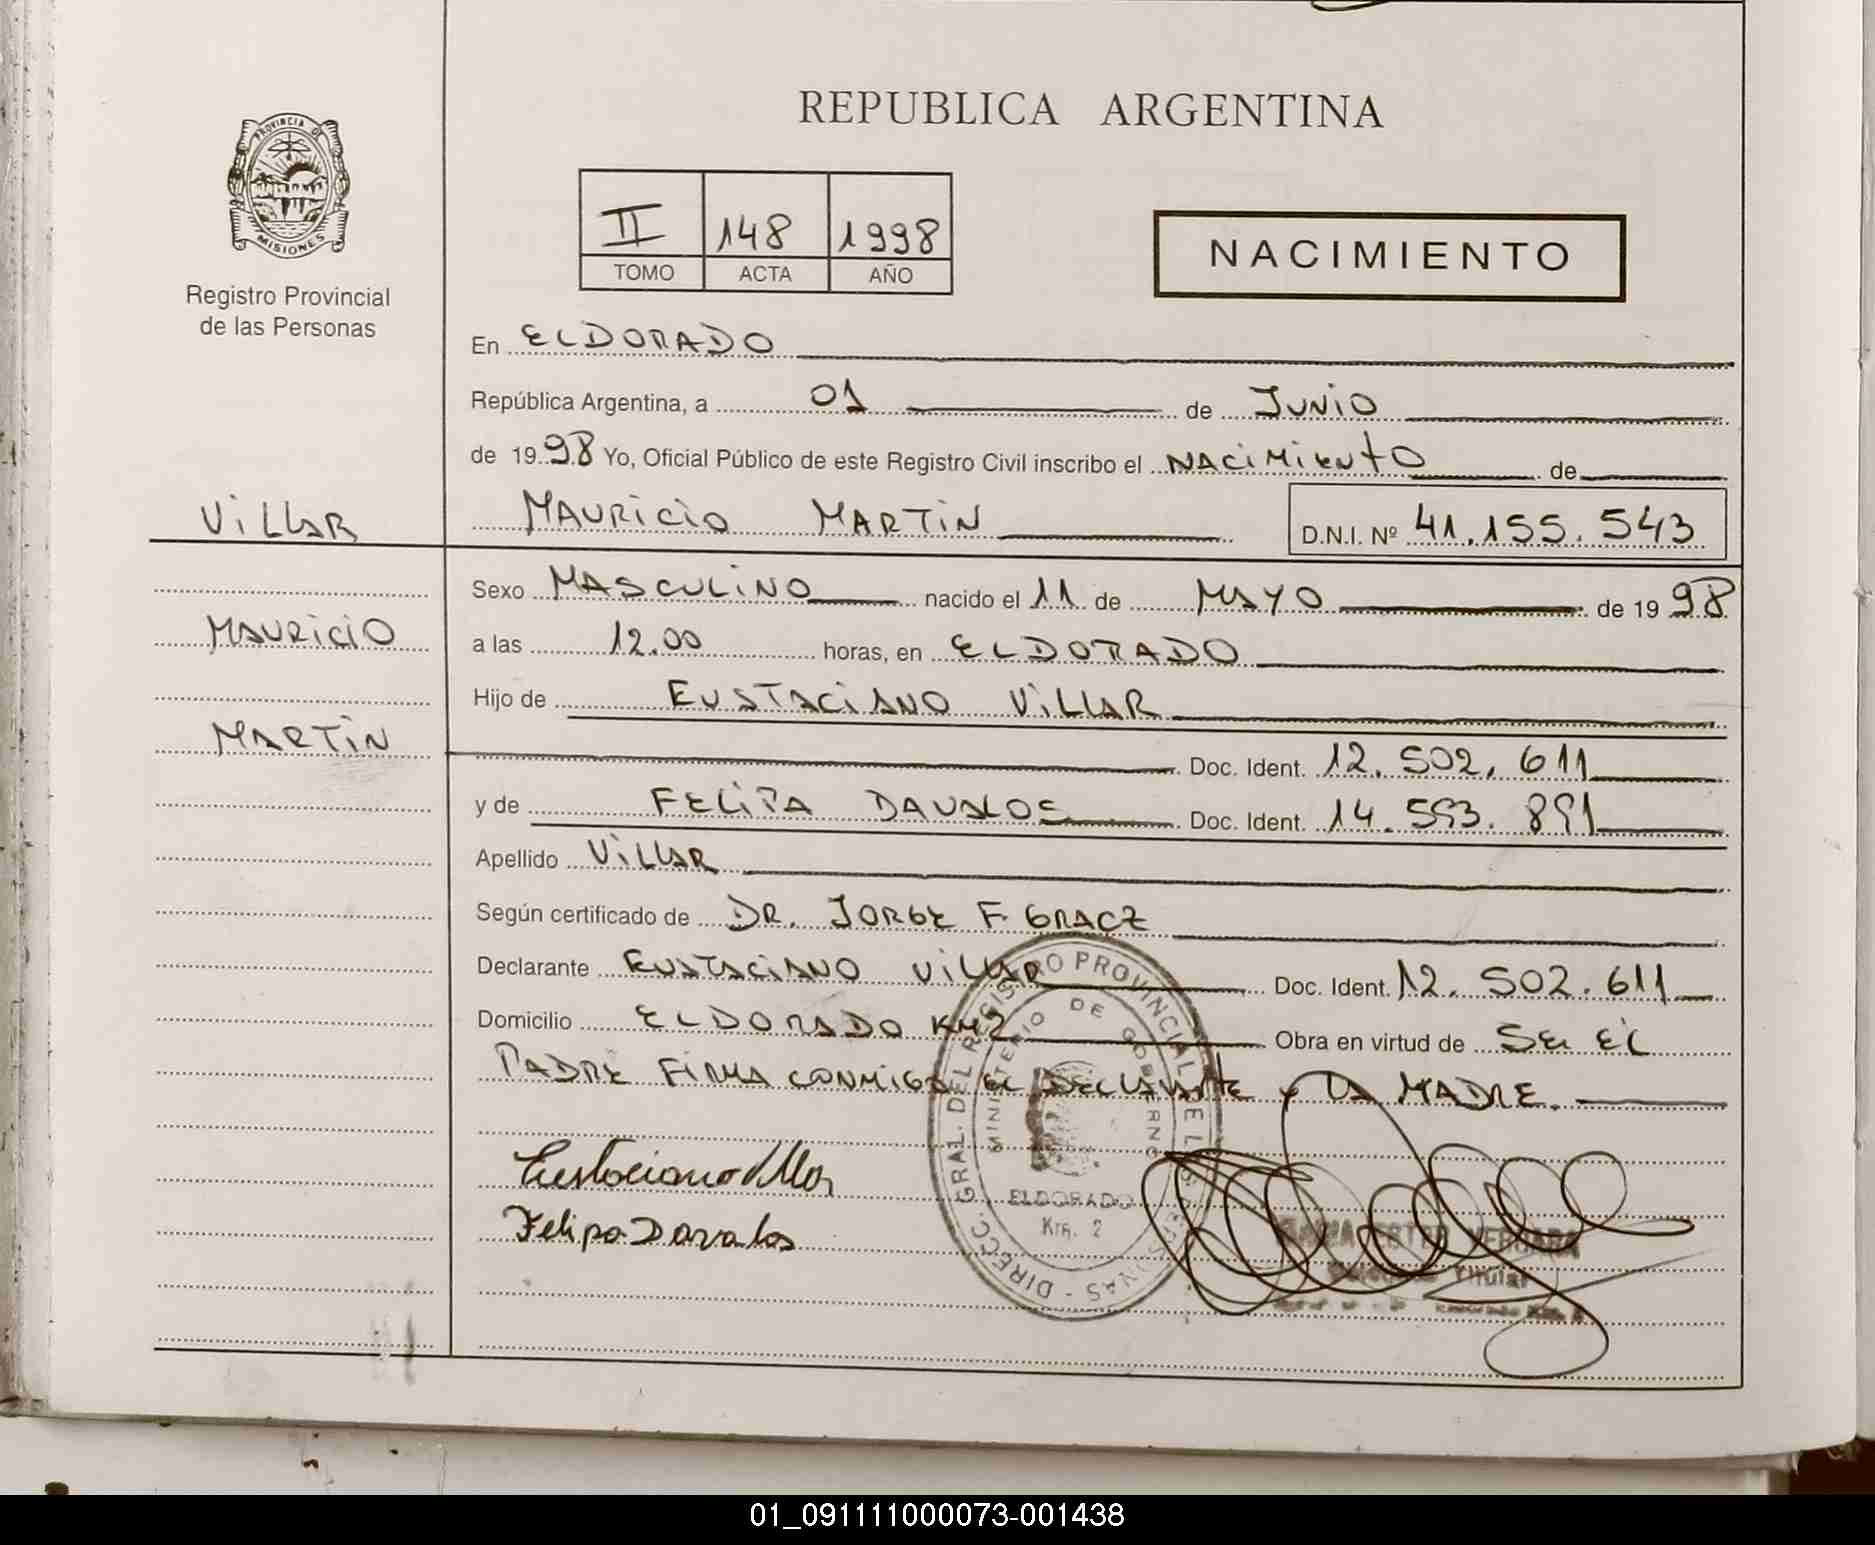 REPUBLICA ARGENTINA
PROVINCIA DE
MISIONES
Registro Provincial
de las Personas
II 148 1998
TOMO ACTA AÑO
NACIMIENTO
En ELDORADO
República Argentina, a 01 de JUNIO
de 1998 Yo, Oficial Público de este Registro Civil inscribo el NACIMIENTO de
VILLAR
MAURICIO MARTIN D.N.I. Nº 41.155.543
Sexo MASCULINO nacido el 11 de MAYO de 1998
MAURICIO
a las 12.00 horas, en ELDORADO
Hijo de EUSTACIANO VILLAR
MARTIN
Doc. Ident. 12.502.611
y de FELIPA DAVALOS Doc. Ident. 14.593.891
Apellido VILLAR
Según certificado de DR. JORGE F. GRACZ
Declarante EUSTACIANO VILLAR Doc. Ident. 12.502.611
Domicilio ELDORADO KM2 Obra en virtud de SER EL
PADRE FIRMA CONMIGO EL DECLARANTE y LA MADRE.
Eustaciano Villar
Felipa Davalos
DIRECC. GRAL. DEL REGISTRO PROVINCIAL DE LAS PERSONAS
MINISTERIO DE GOBIERNO
ELDORADO
Km. 2
VERGARA
Titular
01_091111000073-001438